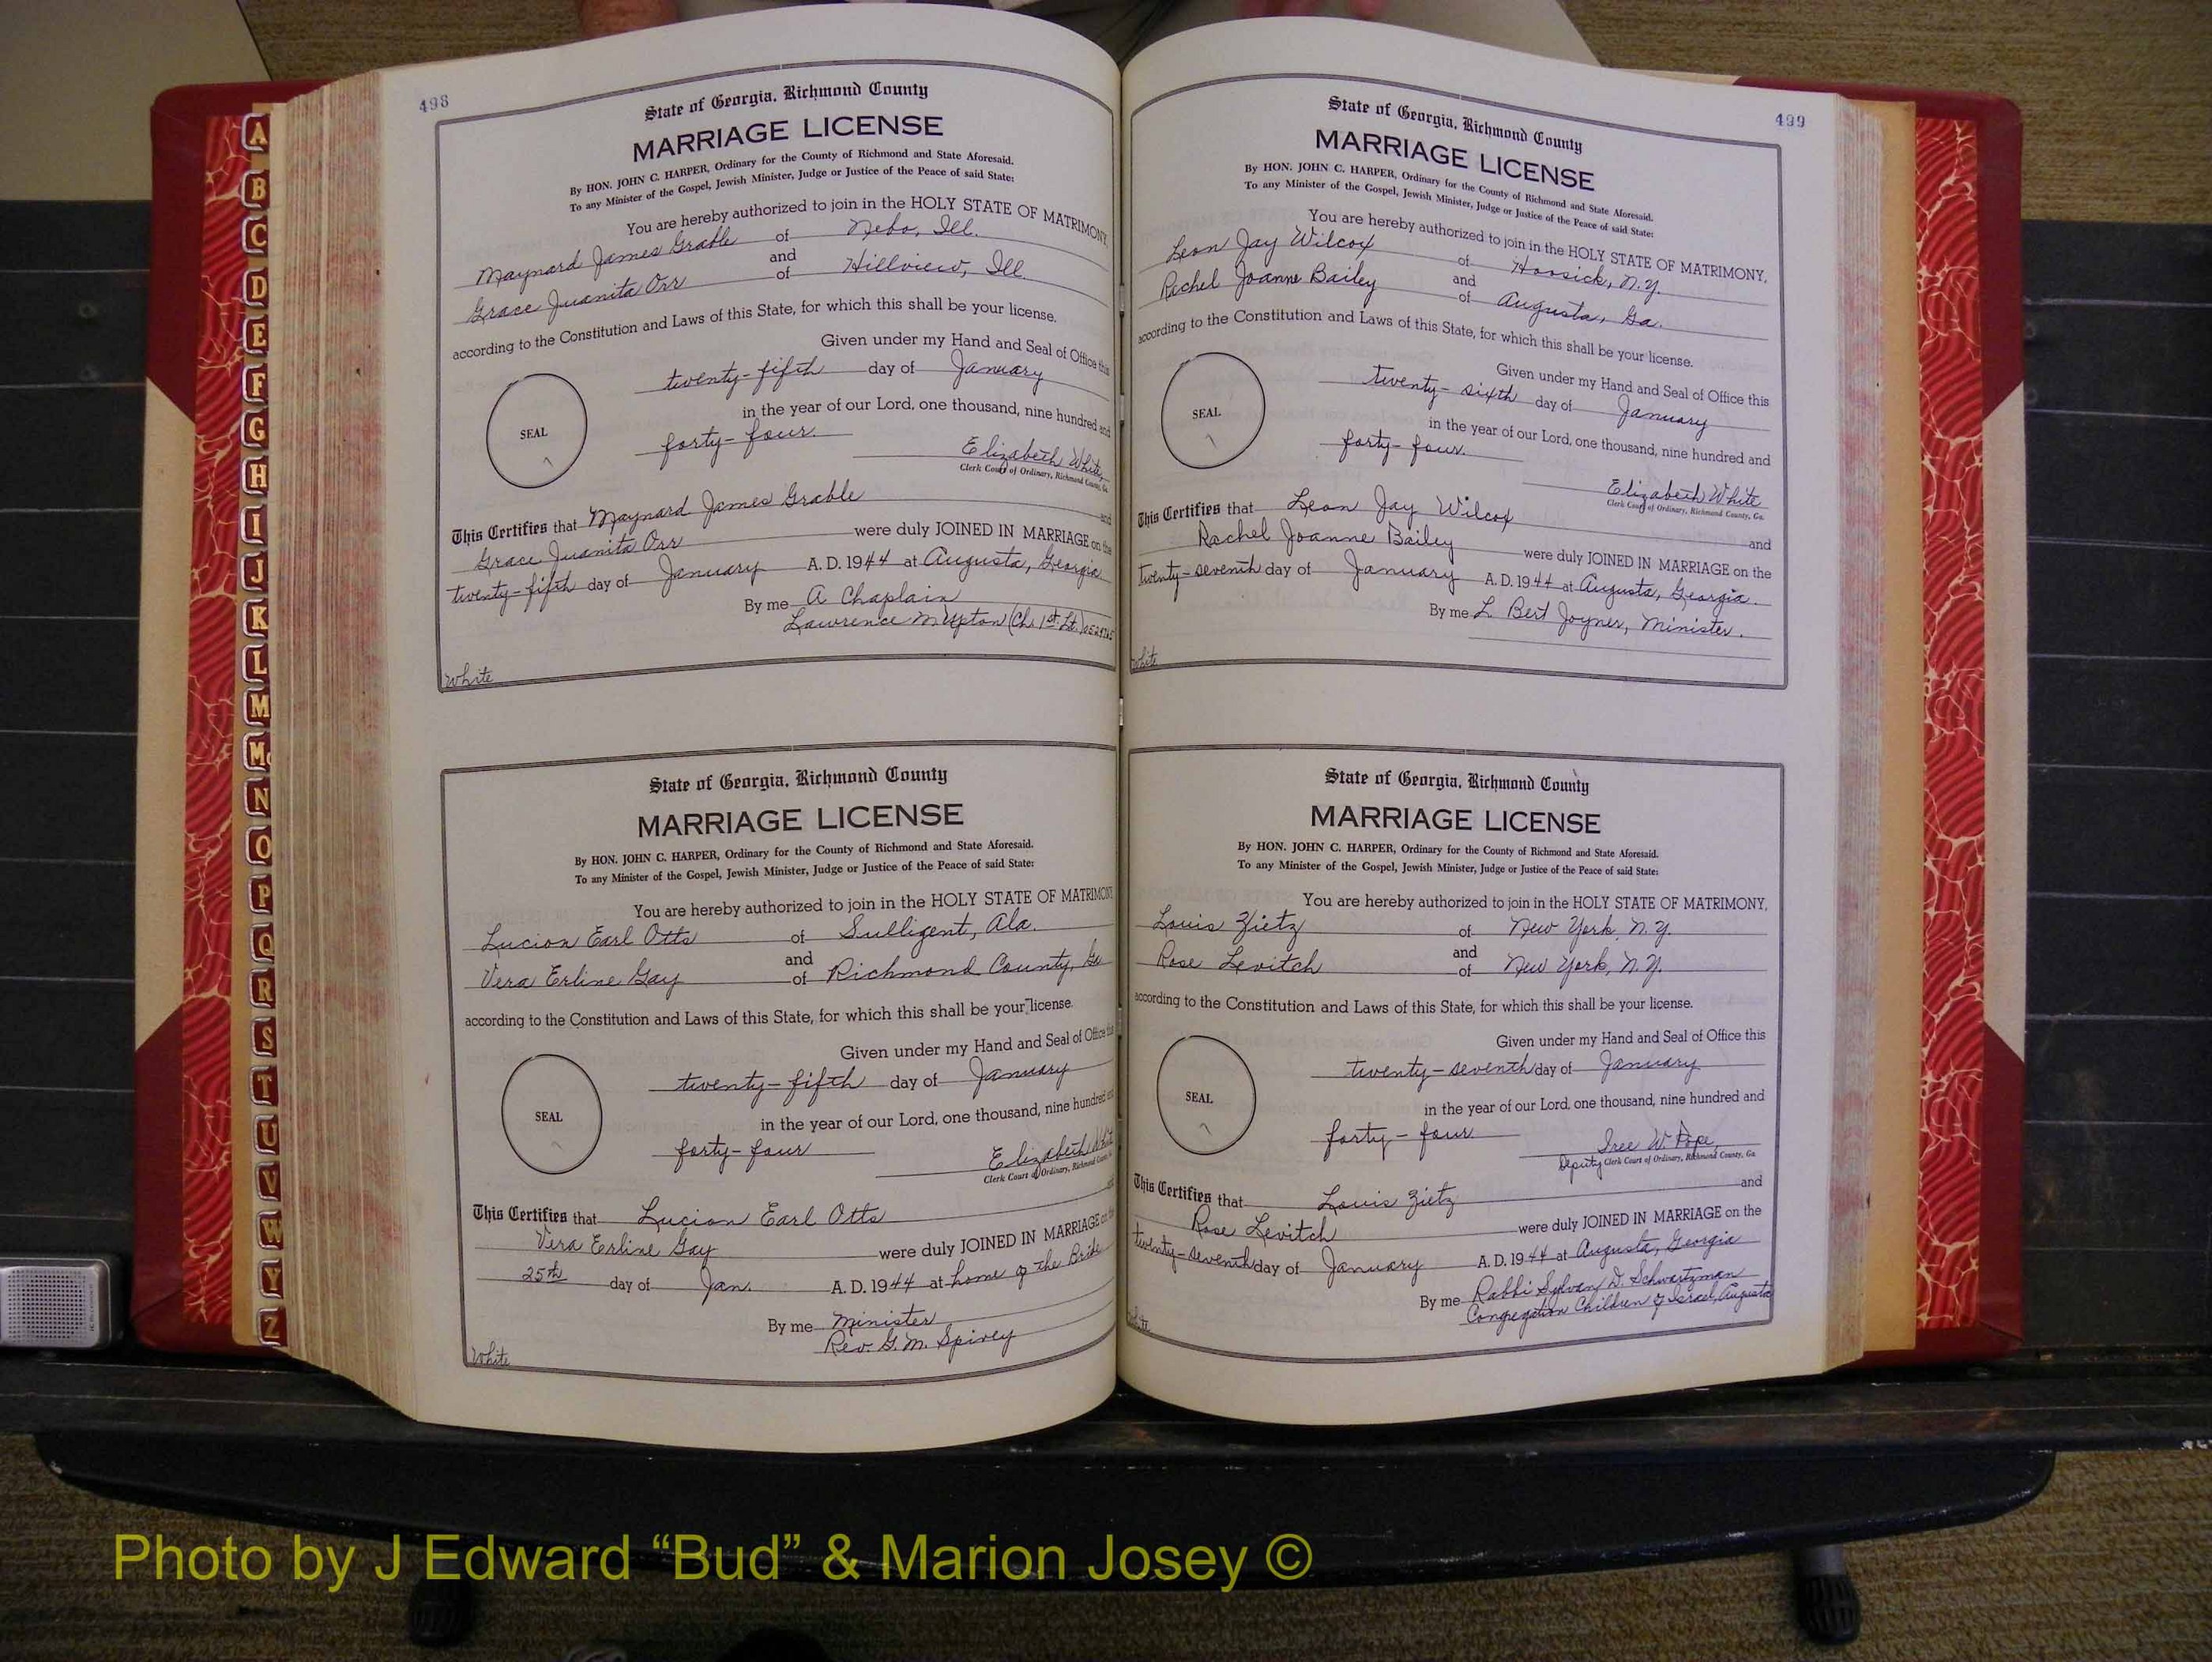 498
State of Georgia, Richmond County
MARRIAGE LICENSE
By HON. JOHN C. HARPER, Ordinary for the County of Richmond and State Aforesaid.
To any Minister of the Gospel, Jewish Minister, Judge or Justice of the Peace of said State:
You are hereby authorized to join in the HOLY STATE OF MATRIMONY,
Maynard James Grable of Nebo, Ill.
and
Grace Juanita Orr of Hillview, Ill.
according to the Constitution and Laws of this State, for which this shall be your license.
Given under my Hand and Seal of Office this
twenty-fifth day of January
in the year of our Lord, one thousand, nine hundred and
SEAL
forty-four.
Elizabeth White
Clerk Court of Ordinary, Richmond County, Ga.
This Certifies that Maynard James Grable and
Grace Juanita Orr were duly JOINED IN MARRIAGE on the
twenty-fifth day of January A. D. 1944 at Augusta, Georgia
By me A Chaplain
Lawrence M Upton (Ch. 1st. Lt.)
White
State of Georgia, Richmond County
MARRIAGE LICENSE
By HON. JOHN C. HARPER, Ordinary for the County of Richmond and State Aforesaid.
To any Minister of the Gospel, Jewish Minister, Judge or Justice of the Peace of said State:
You are hereby authorized to join in the HOLY STATE OF MATRIMONY
Lucion Earl Otts of Sulligent, Ala.
and
Vera Erline Gay of Richmond County, Ga
according to the Constitution and Laws of this State, for which this shall be your license.
Given under my Hand and Seal of Office this
twenty-fifth day of January
in the year of our Lord, one thousand, nine hundred and
SEAL
forty-four
Elizabeth White
Clerk Court of Ordinary, Richmond County
This Certifies that Lucion Earl Otts and
Vera Erline Gay were duly JOINED IN MARRIAGE on the
25th day of Jan. A. D. 1944 at home of the Bride
By me Minister
Rev. G. M. Spivey
White
499
State of Georgia, Richmond County
MARRIAGE LICENSE
By HON. JOHN C. HARPER, Ordinary for the County of Richmond and State Aforesaid.
To any Minister of the Gospel, Jewish Minister, Judge or Justice of the Peace of said State:
You are hereby authorized to join in the HOLY STATE OF MATRIMONY,
Leon Jay Wilcox of Hoosick, N.Y.
and
Rachel Joanne Bailey of Augusta, Ga.
according to the Constitution and Laws of this State, for which this shall be your license.
Given under my Hand and Seal of Office this
twenty-sixth day of January
in the year of our Lord, one thousand, nine hundred and
SEAL
forty-four.
Elizabeth White
Clerk Court of Ordinary, Richmond County, Ga.
This Certifies that Leon Jay Wilcox and
Rachel Joanne Bailey were duly JOINED IN MARRIAGE on the
twenty-seventh day of January A. D. 1944 at Augusta, Georgia.
By me L. Bert Joyner, Minister.
White
State of Georgia, Richmond County
MARRIAGE LICENSE
By HON. JOHN C. HARPER, Ordinary for the County of Richmond and State Aforesaid.
To any Minister of the Gospel, Jewish Minister, Judge or Justice of the Peace of said State:
You are hereby authorized to join in the HOLY STATE OF MATRIMONY,
Louis Zietz of New York, N.Y.
and
Rose Levitch of New York, N.Y.
according to the Constitution and Laws of this State, for which this shall be your license.
Given under my Hand and Seal of Office this
twenty-seventh day of January
in the year of our Lord, one thousand, nine hundred and
SEAL
forty-four.
W Pope
Deputy Clerk Court of Ordinary, Richmond County, Ga.
This Certifies that Louis Zietz and
Rose Levitch were duly JOINED IN MARRIAGE on the
twenty-seventh day of January A. D. 1944 at Augusta, Georgia
By me Rabbi Sylvan D. Schwartzman
Congregation Children of Israel, Augusta
White
A
B
C
D
E
F
G
H
I
J
K
L
M
Mc
N
O
P
Q
R
S
T
U
V
W
Y
Z
Photo by J Edward “Bud” & Marion Josey ©